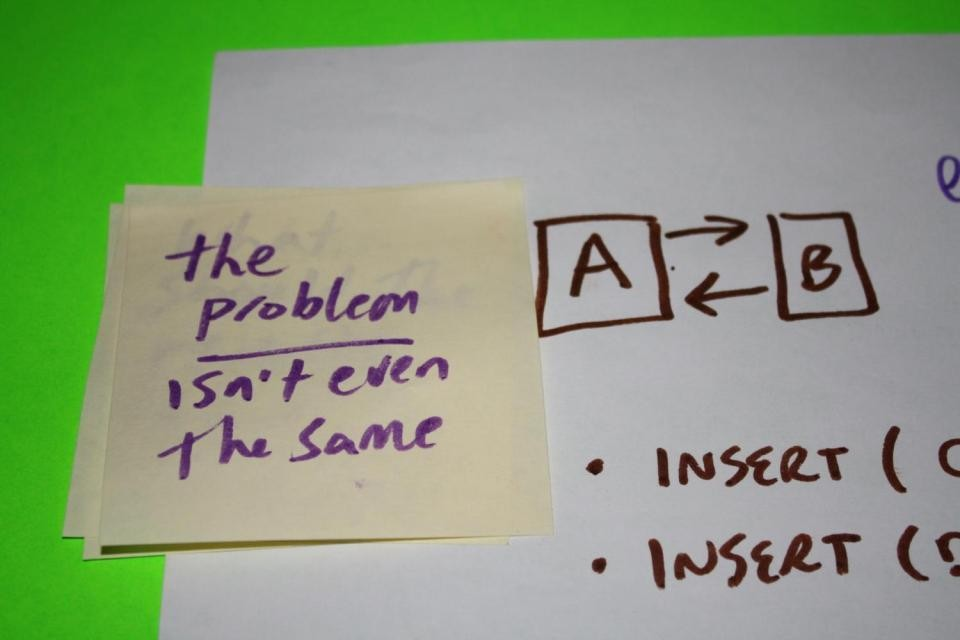 the
problem
isn't even
the same
A
B
• INSERT (
• INSERT (